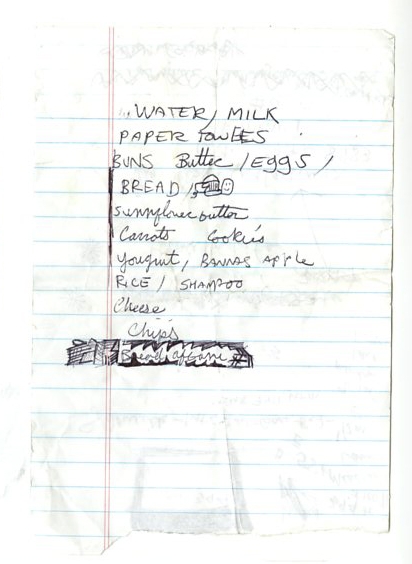 WATER, MILK
PAPER TOWEES
BUNS Butter / EGGS /
BREAD /
Sunnyflower butter
Carrots Cookies
Yougurt, BANNAS APPLE
RICE / SHAMPOO
Cheese
Chips
Bread